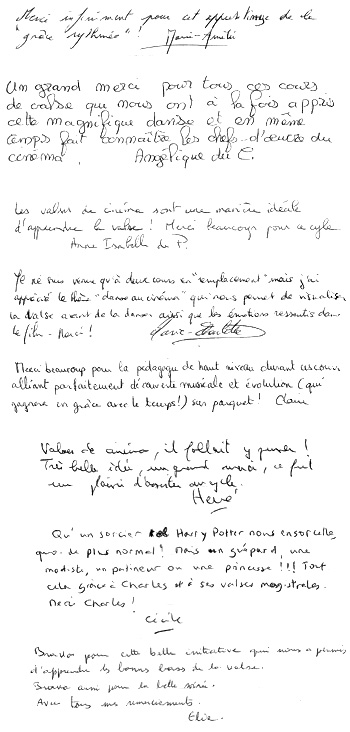 Merci infiniment pour cet apprentissage de la
"grâce rythmée" ! Marie-Amélie
Un grand merci pour tous ces cours
de valse qui nous ont à la fois appris
cette magnifique danse et en même
temps fait connaître les chefs-d'œuvre du
cinéma. Angélique du C.
Les valses du cinéma sont une manière idéale
d'apprendre la valse ! Merci beaucoup pour ce cycle
Anne Isabelle de P.
Je ne suis venue qu'à deux cours en "remplacement" mais j'ai
apprécié le thème "danse au cinéma" qui nous permet de visualiser
la valse avant de la danser ainsi que les émotions ressenties dans
le film - Merci !
Merci beaucoup pour la pédagogie de haut niveau durant ces cours
alliant parfaitement découverte musicale et évolution (qui
gagnera en grâce avec le temps !) sur parquet ! Claire
Valses de cinéma, il fallait y penser !
Très belle idée, un grand merci, ce fut
un plaisir d'assister au cycle.
Hervé
Qu'un sorcier Harry Potter nous ensorcelle,
quoi de plus normal ! Mais un guépard, une
modiste, un patineur ou une princesse !!! Tout
cela grâce à Charles et à ses valses magistrales.
Merci Charles !
Cécile
Bravo pour cette belle initiative qui nous a permis
d'apprendre les bonnes bases de la valse.
Bravo aussi pour la belle soirée.
Avec tous mes remerciements.
Elise.